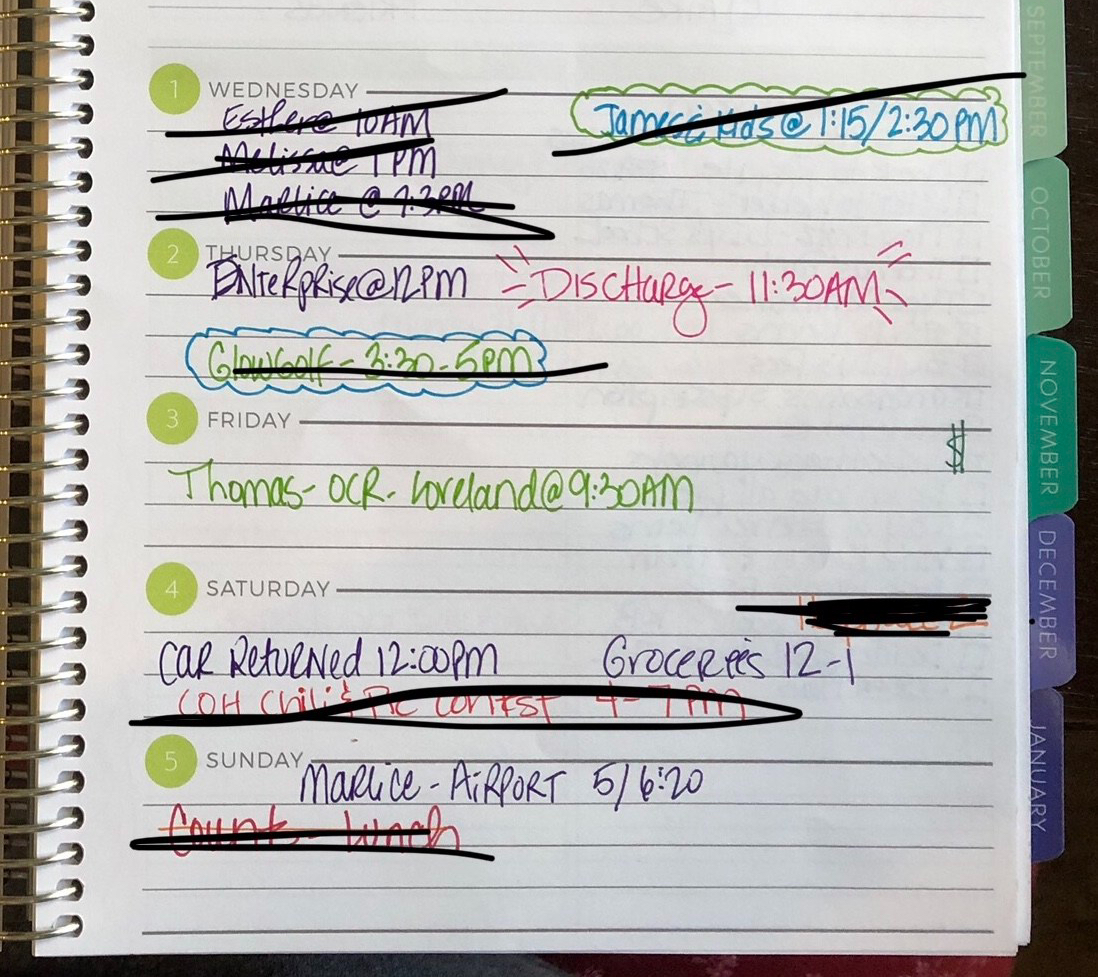 1 WEDNESDAY
Esther@ 10AM
James & Kids @ 1:15/2:30PM
Melissa@ 1PM
Marlice @
2 THURSDAY
ENterprise@12PM DISCHarge- 11:30AM
GlowGolf- 3:30-5PM
3 FRIDAY
$
Thomas- OCR- Loveland@9:30AM
4 SATURDAY
CAR ReturNed 12:00pm GROCERies 12-1
COH Chili & Pie Contest 4-7PM
5 SUNDAY
MARlice - AiRPORT 5/6:20
Lunch
SEPTEMBER
OCTOBER
NOVEMBER
DECEMBER
JANUARY